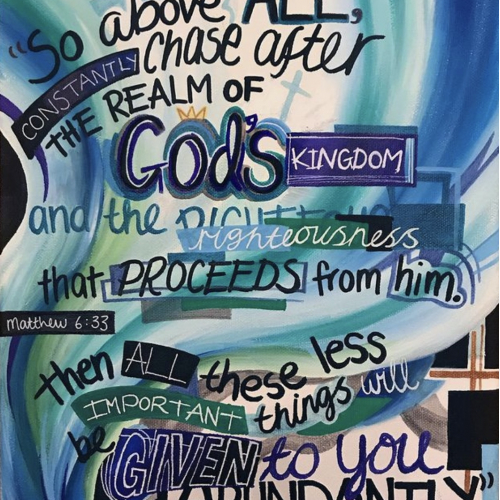 "So above ALL,
CONSTANTLY chase after
the REALM OF
God's KINGDOM
and the RIGHTEOUS
righteousness
that PROCEEDS from him.
Matthew 6:33
then ALL these less
IMPORTANT things will
be GIVEN to you
ABUNDANTLY"